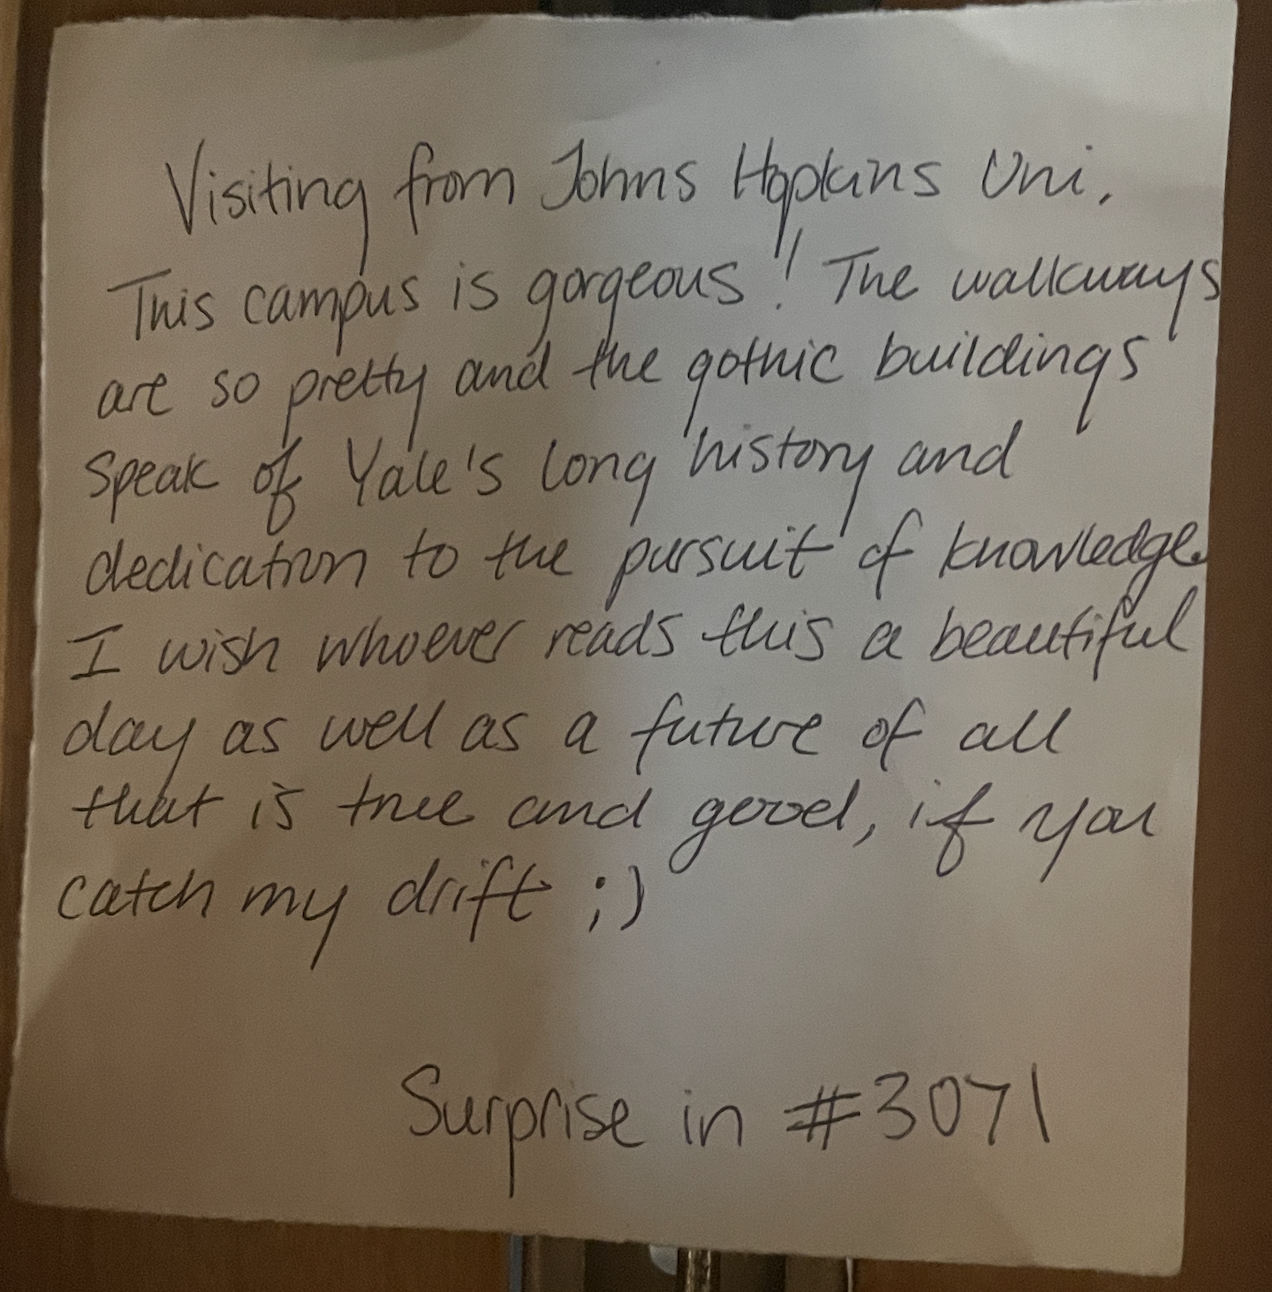 Visiting from Johns Hopkins Uni.
This campus is gorgeous! The walkways
are so pretty and the gothic buildings
speak of Yale's long history and
dedication to the pursuit of knowledge.
I wish whoever reads this a beautiful
day as well as a future of all
that is true and good, if you
catch my drift ;)
Surprise in #3071